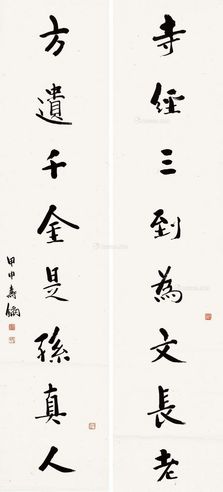 寺經三到為文長老
方遺千金是孫真人
甲申壽鏞